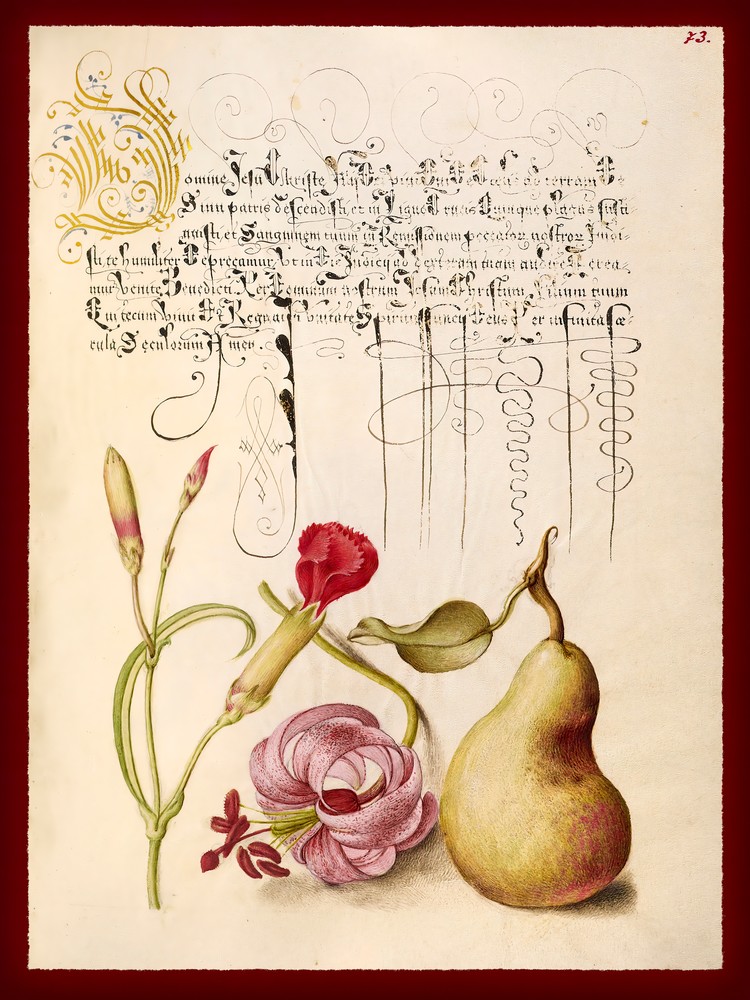 73.
Domine Jesu Christe
Sinu patris descendisti et in Ligno Crucis Quinque plagas susti
nuisti et Sanguinem tuum in Remissionem peccator nostror
te humiliter Deprecamur Vt in Die Judicij ad dextram tuam
mur Venite Benedicti. Per Dominum nostrum Jesum Christum, filium tuum
Qui tecum Viuit Et Regnat in Vnitate Spiritus sancti Deus Per infinita sæ
cula Seculorum Amen.